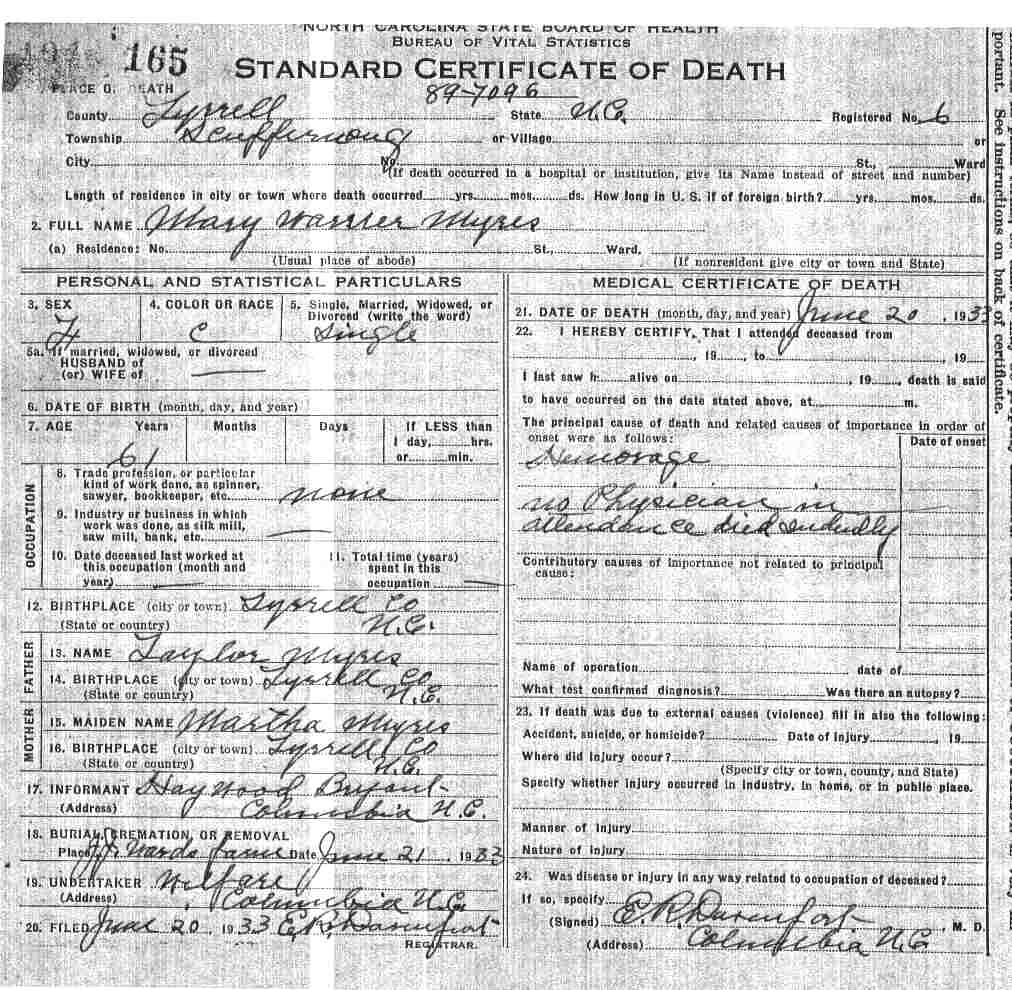 NORTH CAROLINA STATE BOARD OF HEALTH
BUREAU OF VITAL STATISTICS
165
STANDARD CERTIFICATE OF DEATH
PLACE OF DEATH
89-7096
County Tyrrell State N.C. Registered No. 6
Township Scuppernong or Village or
City No. St., Ward
(If death occurred in a hospital or institution, give its Name instead of street and number)
Length of residence in city or town where death occurred yrs. mos. ds. How long in U. S. if of foreign birth? yrs. mos. ds.
2. FULL NAME Mary Warner Myres
(a) Residence: No. St., Ward,
(Usual place of abode) (If nonresident give city or town and State)
PERSONAL AND STATISTICAL PARTICULARS
3. SEX 4. COLOR OR RACE 5. Single, Married, Widowed, or
Divorced (write the word)
F C Single
5a. If married, widowed, or divorced
HUSBAND of
(or) WIFE of
6. DATE OF BIRTH (month, day, and year)
7. AGE Years Months Days If LESS than
1 day, hrs.
or min.
61
OCCUPATION
8. Trade profession, or particular
kind of work done, as spinner,
sawyer, bookkeeper, etc. none
9. Industry or business in which
work was done, as silk mill,
saw mill, bank, etc.
10. Date deceased last worked at
this occupation (month and
year)
11. Total time (years)
spent in this
occupation
12. BIRTHPLACE (city or town) Tyrrell Co
(State or country) N.C.
FATHER
13. NAME Taylor Myres
14. BIRTHPLACE (city or town) Tyrrell Co
(State or country) N.C.
MOTHER
15. MAIDEN NAME Martha Myres
16. BIRTHPLACE (city or town) Tyrrell Co
(State or country) N.C.
17. INFORMANT Haywood Bryant
(Address) Columbia N.C.
18. BURIAL, CREMATION, OR REMOVAL
Place Wards farm Date June 21, 1933
19. UNDERTAKER Welfare
(Address) Columbia N.C.
20. FILED June 20, 1933 E.R. Davenport
REGISTRAR.
MEDICAL CERTIFICATE OF DEATH
21. DATE OF DEATH (month, day, and year) June 20, 1933
22. I HEREBY CERTIFY, That I attended deceased from
, 19 , to , 19
I last saw h alive on , 19 , death is said
to have occurred on the date stated above, at m.
The principal cause of death and related causes of importance in order of
onset were as follows: Date of onset
Hemorage
no Physician in
attendance died suddenly
Contributory causes of importance not related to principal
cause:
Name of operation date of
What test confirmed diagnosis? Was there an autopsy?
23. If death was due to external causes (violence) fill in also the following:
Accident, suicide, or homicide? Date of Injury , 19
Where did injury occur?
(Specify city or town, county, and State)
Specify whether injury occurred in industry, in home, or in public place.
Manner of Injury
Nature of Injury
24. Was disease or injury in any way related to occupation of deceased?
If so, specify
(Signed) E.R. Davenport, M. D.
(Address) Columbia N.C.
portant. See instructions on back of certificate.